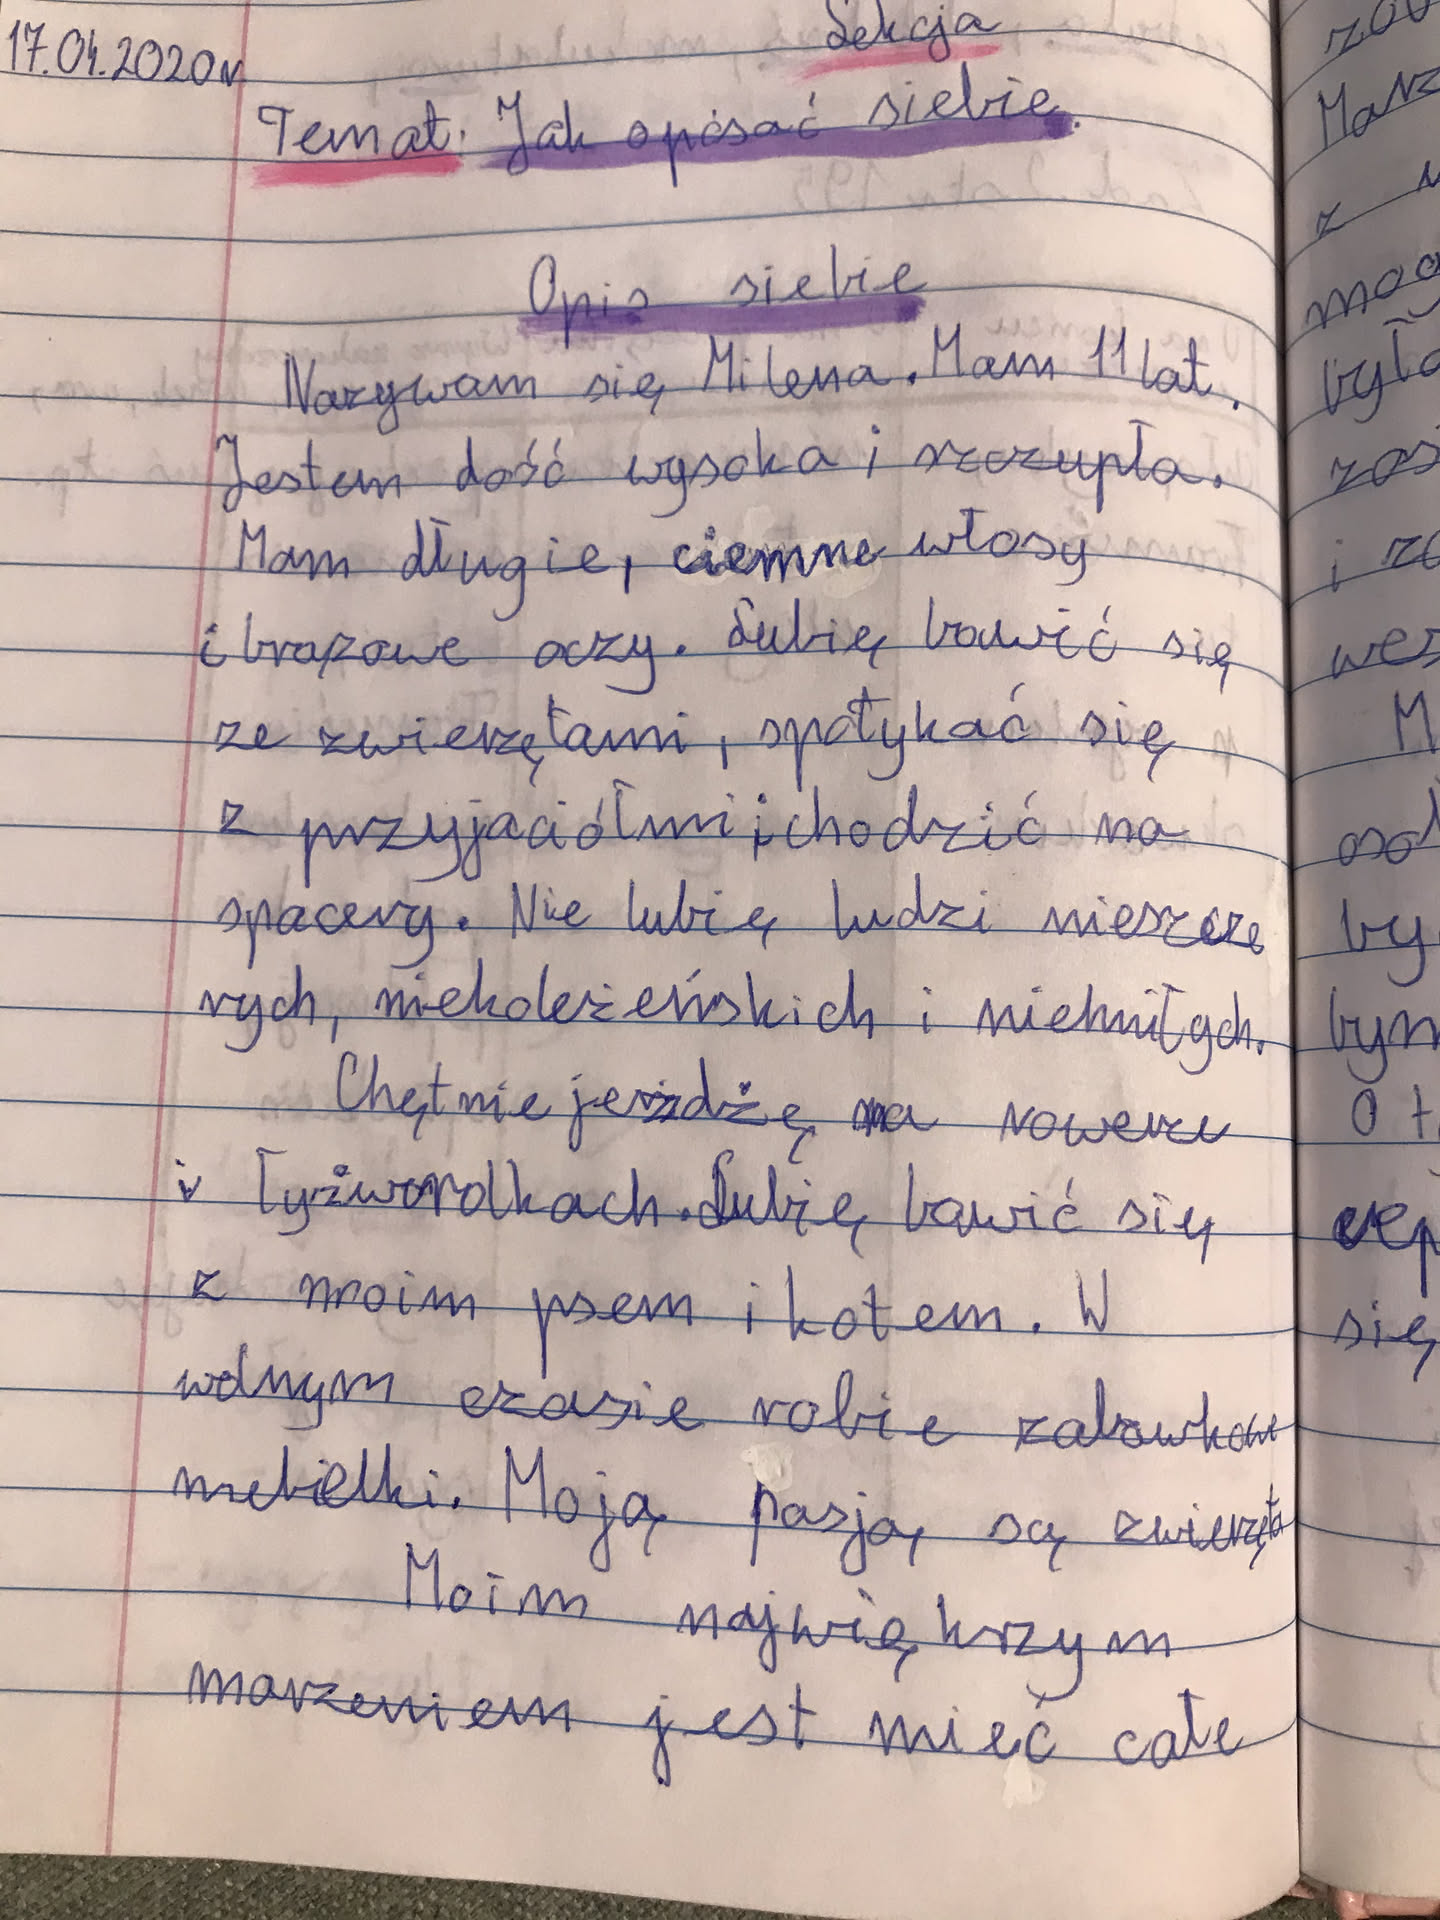 17.04.2020r
Lekcja
Temat: Jak opisać siebie.
Opis siebie
Nazywam się Milena. Mam 11 lat.
Jestem dość wysoka i szczupła.
Mam długie, ciemne włosy
i brązowe oczy. Lubię bawić się
ze zwierzętami, spotykać się
z przyjaciółmi i chodzić na
spacery. Nie lubię ludzi nieszcze
rych, niekoleżeńskich i niemiłych.
Chętnie jeżdżę na rowerze
i łyżworolkach. Lubię bawić się
z moim psem i kotem. W
wolnym czasie robie zabawkowe
mebelki. Moją pasją są zwierzęta
Moim największym
marzeniem jest mieć całe